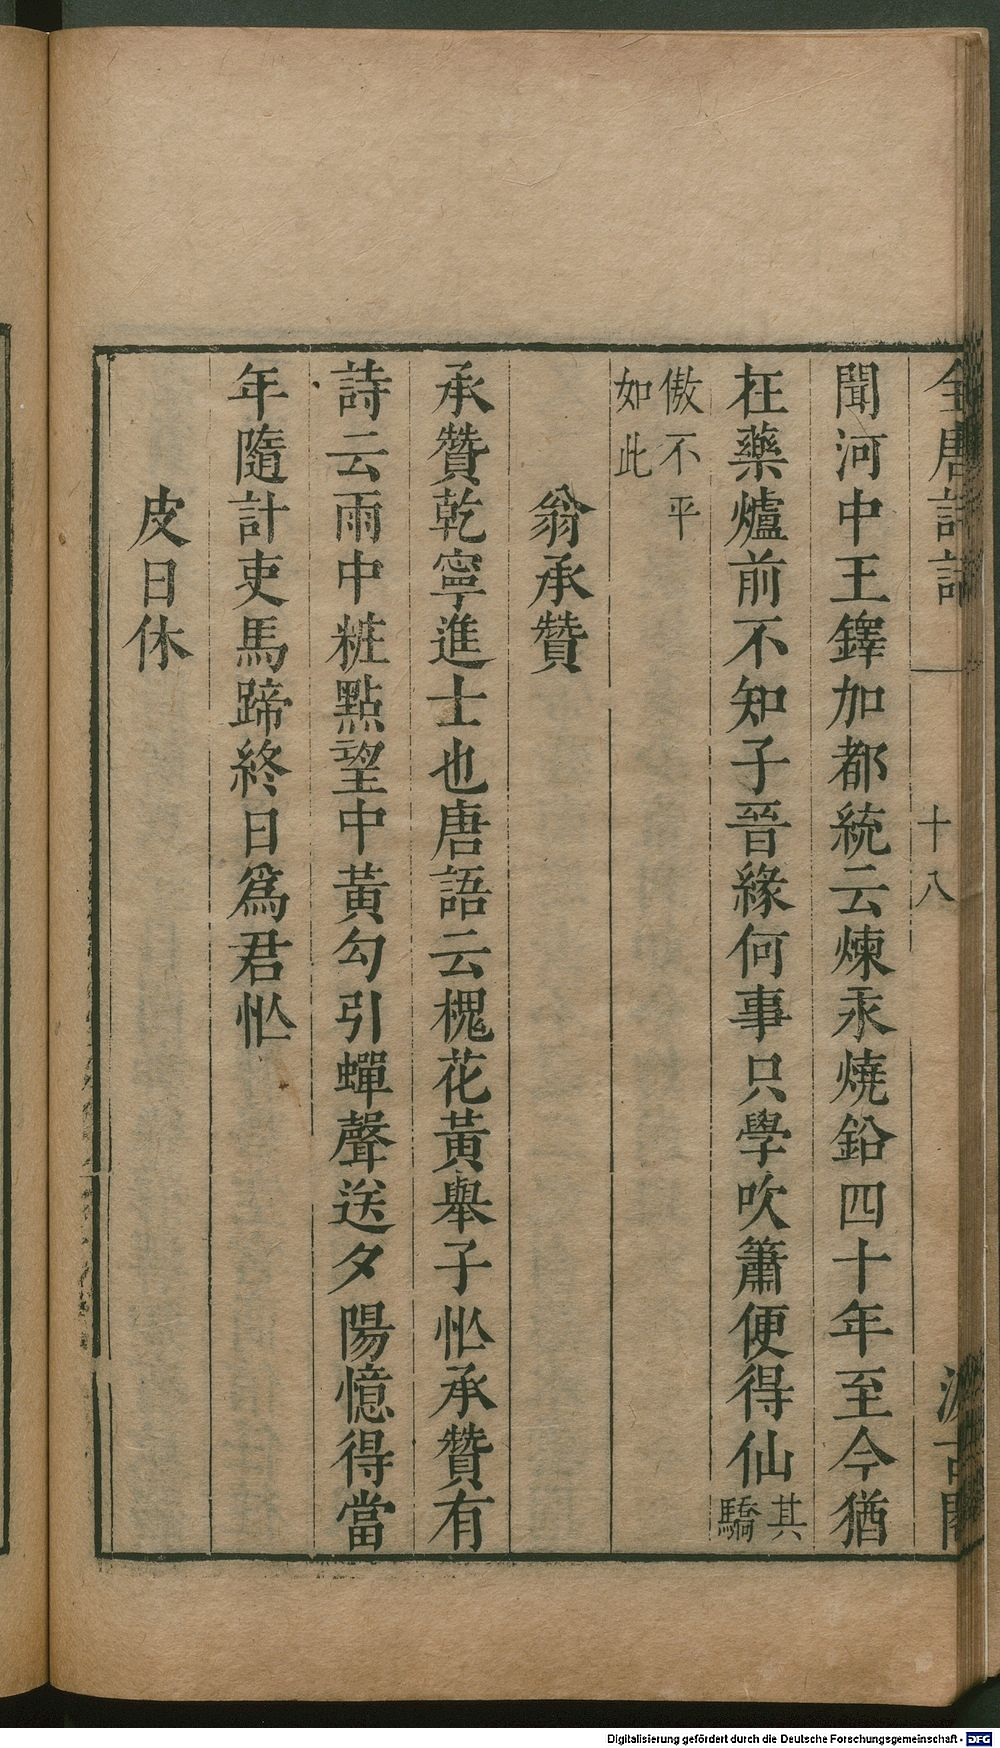 全唐詩話
十八
汲古閣
聞河中王鐸加都統云煉汞燒鉛四十年至今猶
在藥爐前不知子晉緣何事只學吹簫便得仙其驕
傲不平如此
翁承贊
承贊乾寧進士也唐語云槐花黃舉子忙承贊有
詩云雨中粧點望中黃勾引蟬聲送夕陽憶得當
年隨計吏馬蹄終日為君忙
皮日休
Digitalisierung gefördert durch die Deutsche Forschungsgemeinschaft - DFG